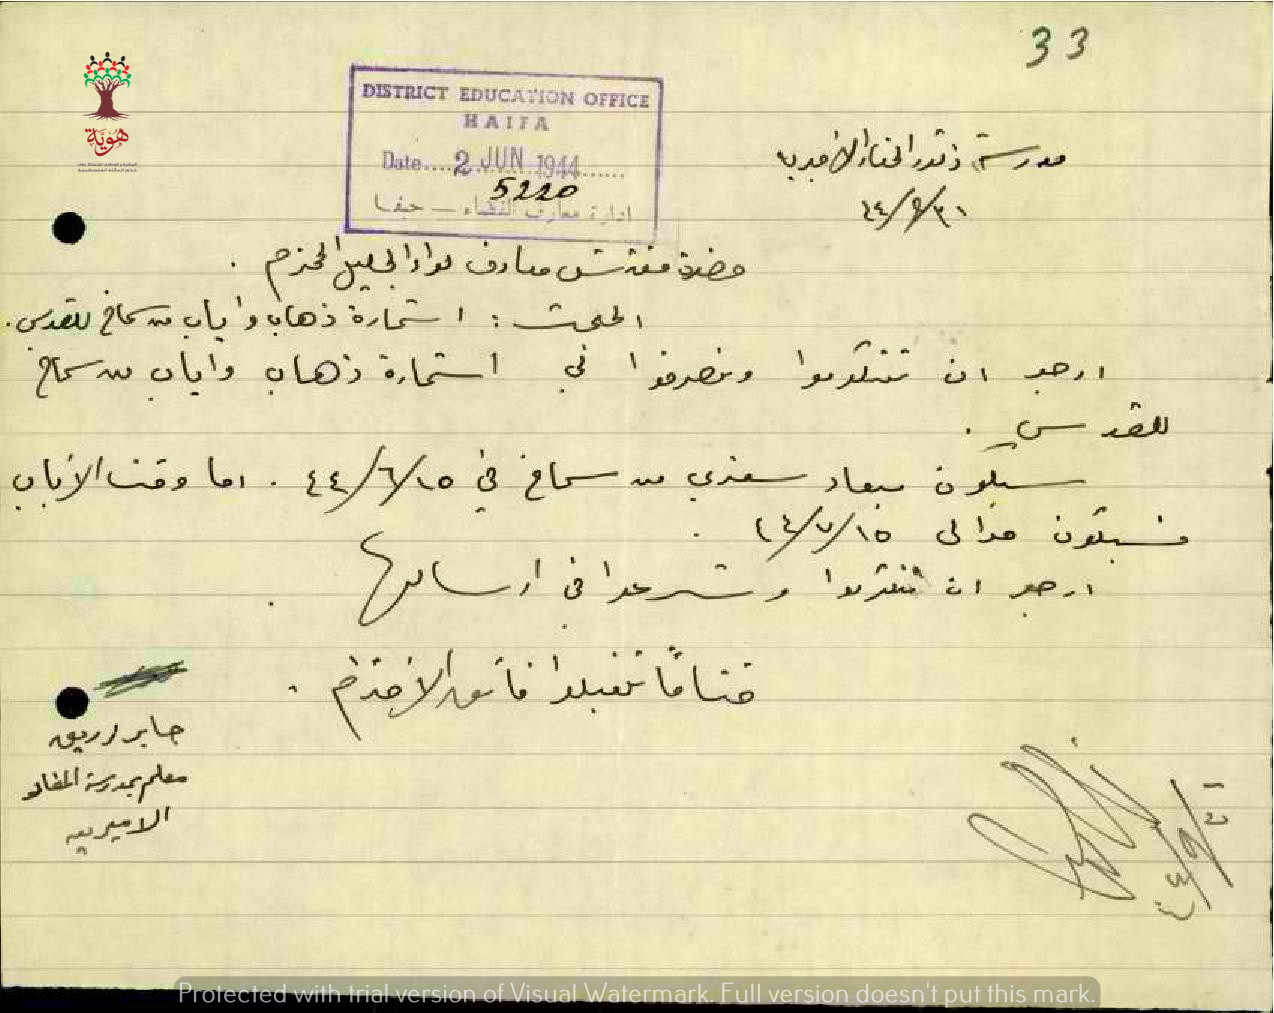 33
هوية
DISTRICT EDUCATION OFFICE
HAIFA
Date.... 2 JUN 1944
5220
ادارة معارف القضاء — حيفا
مدرسة
٣١/٥/٤٤
حضرة مفتش معارف لواء الجليل المحترم .
المبحث : استمارة ذهاب واياب من سماخ للقدس .
ارجو ان تتكرموا وتصرفوا لي استمارة ذهاب واياب من سماخ
للقدس .
سيكون ميعاد سفري من سماخ في ١٥/٦/٤٤ . اما وقت الأياب
فسيكون حوالى ١٥/٧/٤٤ .
ارجو ان تتكرموا وتسرعوا في ارسالها .
ختاماً تفضلوا فائق الاحترام .
جابر
معلم بمدرسة
الاميرية
Protected with trial version of Visual Watermark. Full version doesn't put this mark.